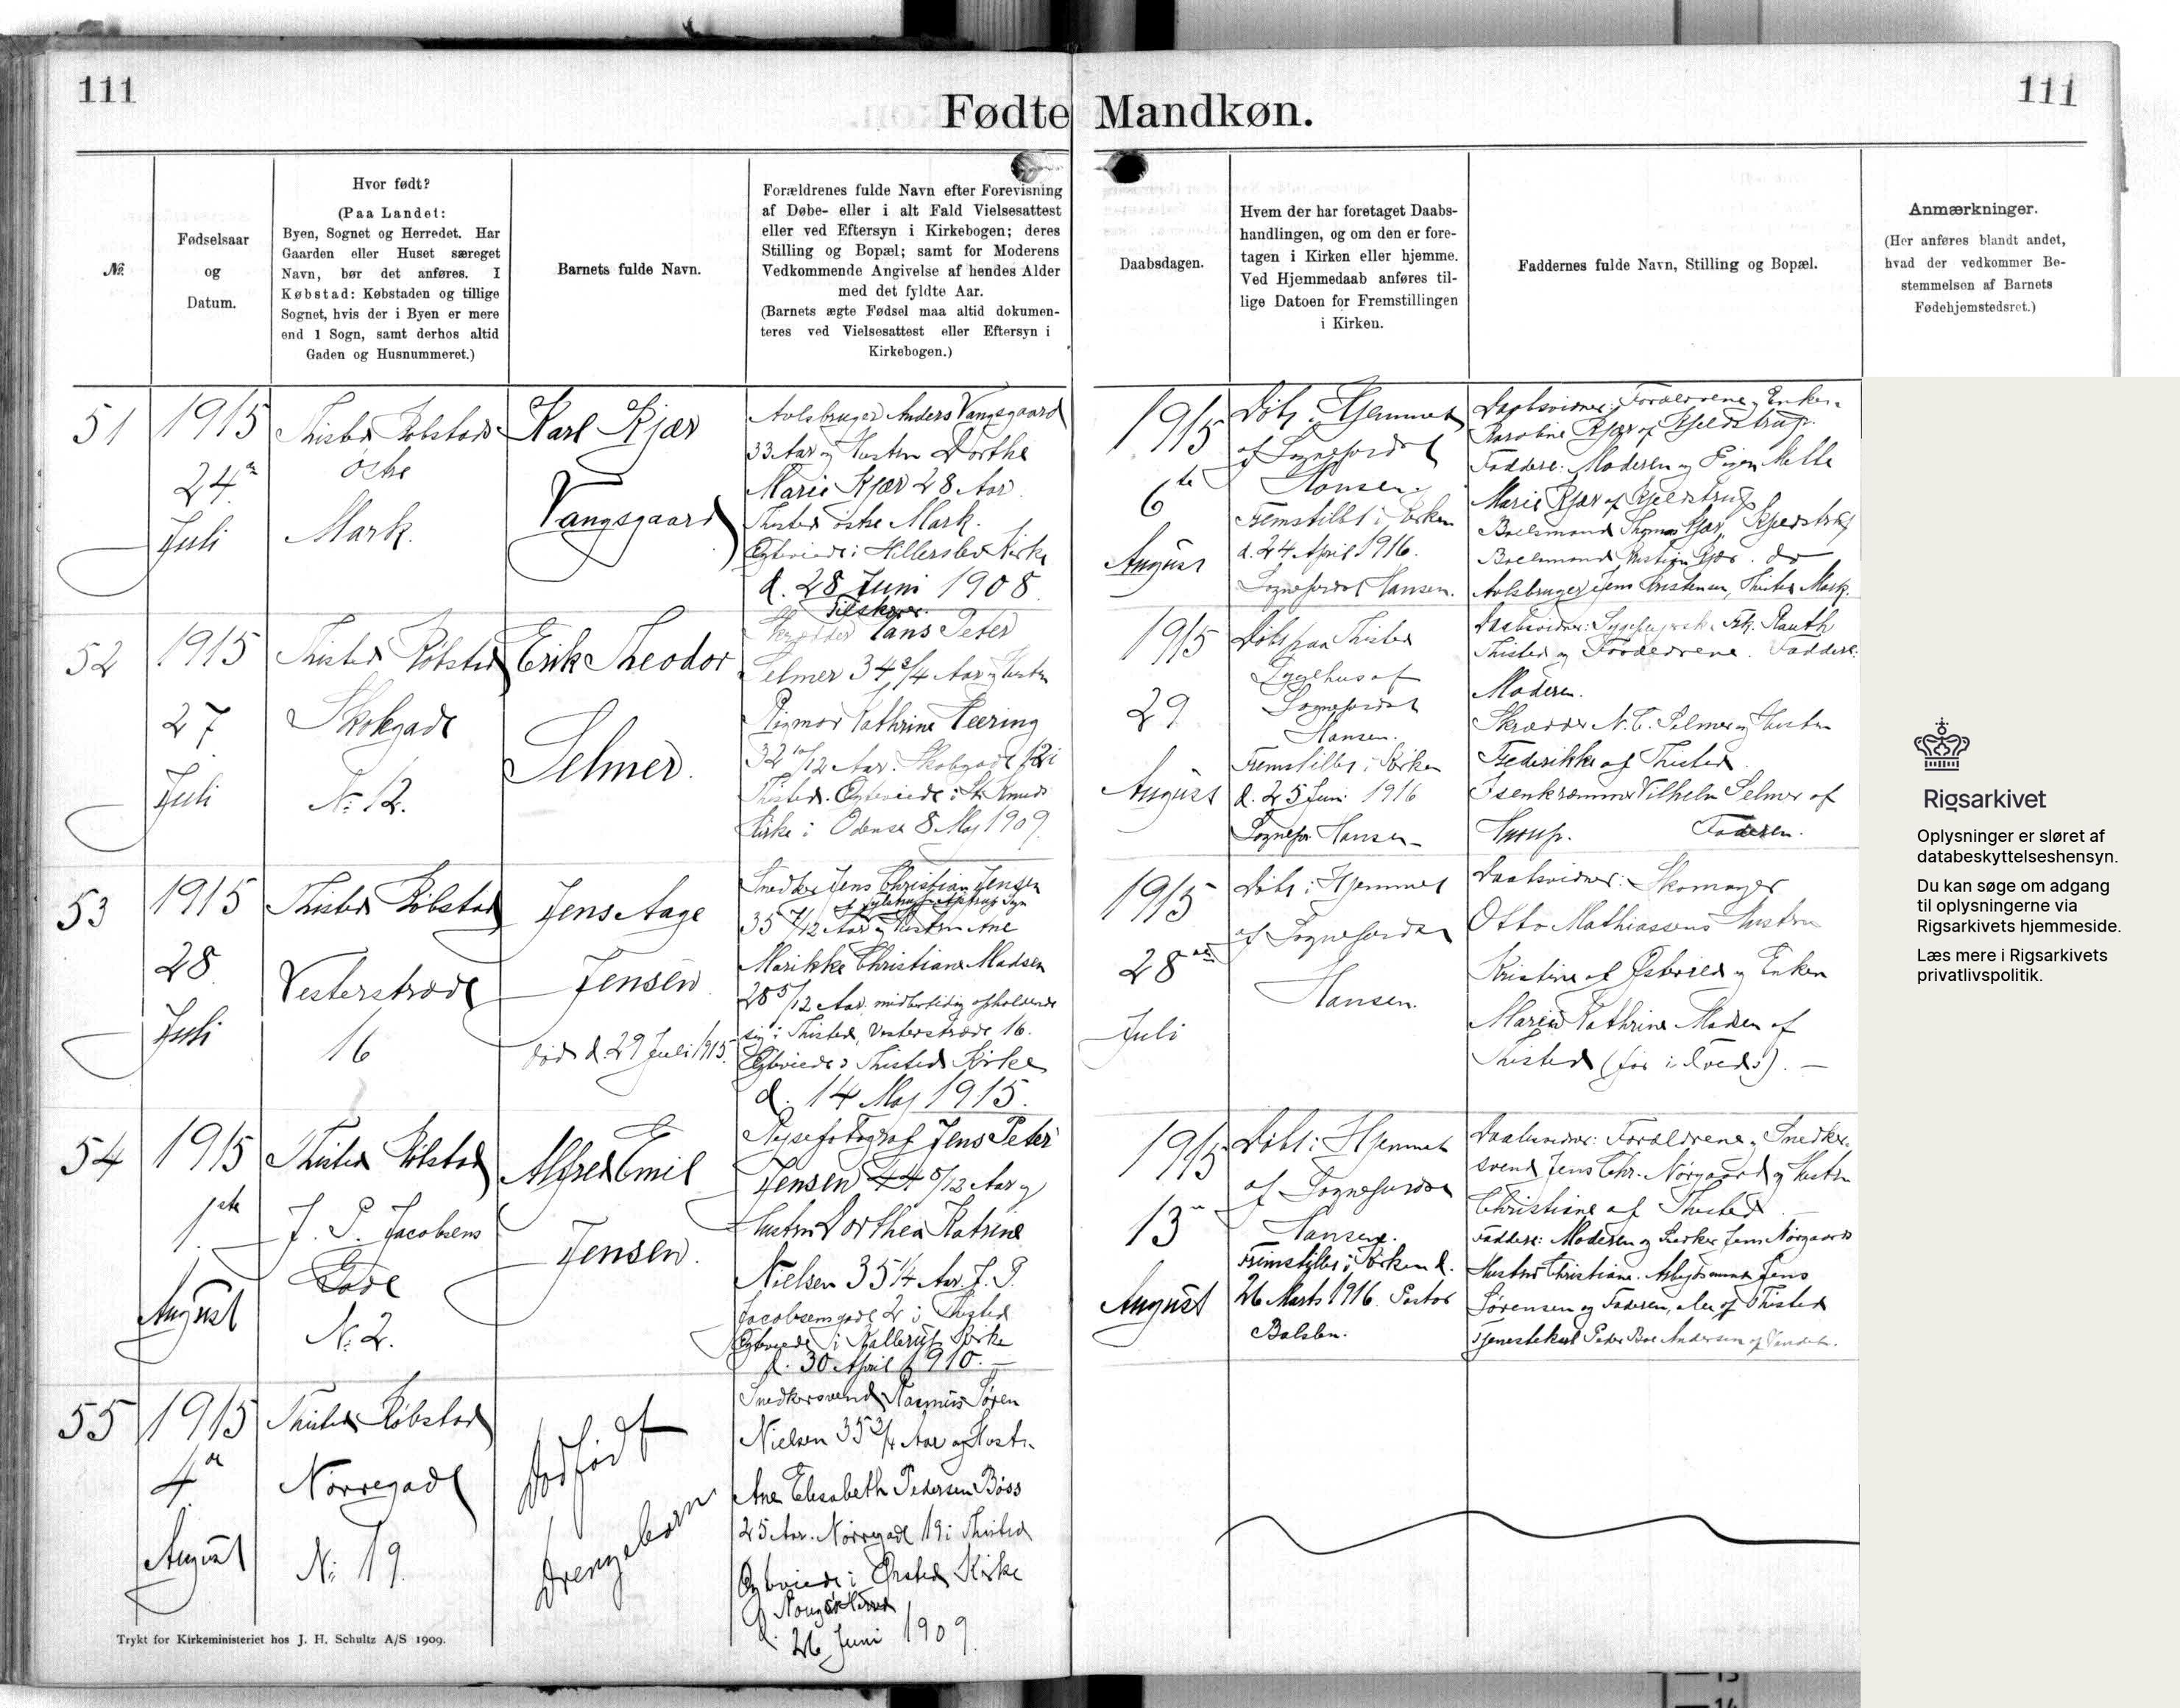 111
111
Fødte Mandkøn.
№.
Fødselsaar
og
Datum.
Hvor født?
(Paa Landet:
Byen, Sognet og Herredet. Har
Gaarden eller Huset særeget
Navn, bør det anføres. I
Købstad: Købstaden og tillige
Sognet, hvis der i Byen er mere
end 1 Sogn, samt derhos altid
Gaden og Husnummeret.)
Barnets fulde Navn.
Forældrenes fulde Navn efter Forevisning
af Døbe- eller i alt Fald Vielsesattest
eller ved Eftersyn i Kirkebogen; deres
Stilling og Bopæl; samt for Moderens
Vedkommende Angivelse af hendes Alder
med det fyldte Aar.
(Barnets ægte Fødsel maa altid dokumen-
teres ved Vielsesattest eller Eftersyn i
Kirkebogen.)
Daabsdagen.
Hvem der har foretaget Daabs-
handlingen, og om den er fore-
tagen i Kirken eller hjemme.
Ved Hjemmedaab anføres til-
lige Datoen for Fremstillingen
i Kirken.
Faddernes fulde Navn, Stilling og Bopæl.
Anmærkninger.
(Her anføres blandt andet,
hvad der vedkommer Be-
stemmelsen af Barnets
Fødehjemstedsret.)
51
1915
24
Juli
Thisted Købstad
østre
Mark.
Karl Kjær
Vangsgaard
Avlsbruger Anders Vangsgaard
33 Aar og Hustru Dorthe
Marie Kjær 28 Aar.
Thisted østre Mark.
Egteviede i Hillerslev Kirke
d. 28 Juni 1908.
1915
6te
August
Døbt i Hjemmet
af Sognepræst
Hansen.
Fremstillet i Kirken
d. 24 April 1916.
Sognepræst Hansen.
Daabsvidner: Forældrene, Enke
Karoline Kjær af Kjelstrup.
Faddere: Moderen og Pigen Mette
Marie Kjær af Kjelstrup
Boelsmand Thomas Kjær, Kjelstrup
Boelsmand Kristian Kjær. do
Avlsbruger Jens Christensen, Thisted Mark.
52
1915
27
Juli
Thisted Købstad
Skolegade
N: 12.
Erik Theodor
Selmer.
Tilskærer.
Hans Peter
Selmer 34 3/4 Aar og Hustru
Rigmor Kathrine Heering
32 10/12 Aar. Skolegade 12 i
Thisted. Egteviede i St. Knuds
Kirke i Odense 8 Maj 1909.
1915
29
August
Døbt paa Thisted
Sygehus af
Sognepræst
Hansen.
Fremstillet i Kirken
d. 25 Juni 1916
Sognepr. Hansen
Daabsvidner: Sygeplejersk. Frk. Rauth
Thisted og Forældrene. Faddere:
Moderen.
Skrædder N. C. Selmer og Hustru
Frederikke af Thisted
Isenkræmmer Vilhelm Selmer af
Faderen.
53
1915
28
Juli
Thisted Købstad
Vesterstræde
16
Jens Aage
Jensen
død d. 29 Juli 1915.
Snedker Jens Christian Jensen
35 7/12 Aar og Hustru Ane
Marikke Christiane Madsen
28 5/12 Aar, midlertidig opholdende
sig i Thisted, Vesterstræde 16.
Egteviede i Thisted Kirke
d. 14 Maj 1915.
1915
28
Juli
Døbt i Hjemmet
af Sognepræst
Hansen.
Daabsvidner: Skomager
Otto Mathiassens Hustru
Kristine af Østerild og Enken
Maren Kathrine Madsen af
Thisted
54
1915
1ste
August
Thisted Købstad
J. P. Jacobsens
Gade
N: 2.
Alfred Emil
Jensen.
Rejsefotograf Jens Peter
Jensen 44 5/12 Aar og
Hustru Dorthea Katrine
Nielsen 35 1/4 Aar. J. P.
Jacobsensgade 2 i Thisted
Egteviede i Kallerup Kirke
d. 30 April 1910.
1915
13
August
Døbt i Hjemmet
af Sognepræst
Hansen.
Fremstillet i Kirken d.
26 Marts 1916. Pastor
Balslev.
Daabsvidner: Forældrene, Snedker-
svend Jens Chr. Nørgaard og Hustru
Christiane af Thisted
Faddere: Moderen og Snedker Jens Nørgaards
Hustru Christiane. Arbejdsmand Jens
Sørensen og Faderen, alle af Thisted
Tjenestekarl Peder Andersen af
55
1915
4
August
Thisted Købstad
Nørregade
N: 19.
Dødfødt
Drengebarn
Snedkersvend Rasmus Søren
Nielsen 35 3/4 Aar og Hustru
Ane Elisabeth Pedersen Bøss
25 Aar. Nørregade 19 i Thisted
Egteviede i Ørsted Kirke
d. 26 Juni 1909.
Trykt for Kirkeministeriet hos J. H. Schultz A/S 1909.
Rigsarkivet
Oplysninger er sløret af
databeskyttelseshensyn.
Du kan søge om adgang
til oplysningerne via
Rigsarkivets hjemmeside.
Læs mere i Rigsarkivets
privatlivspolitik.